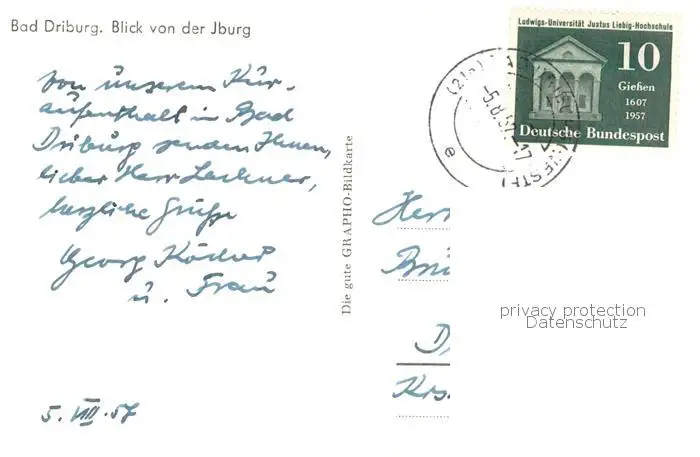 Bad Driburg. Blick von der Jburg
Von unserem Kur-
aufenthalt in Bad
Driburg senden Ihnen,
lieber Herr Lechner,
herzliche Grüße
Georg
u. Frau
5. VIII. 57
Die gute GRAPHO-Bildkarte
Ludwigs-Universität Justus Liebig-Hochschule
10
Gießen
1607
1957
Deutsche Bundespost
-5.8.57.-17
e
Herr
Krs.
privacy protection
Datenschutz